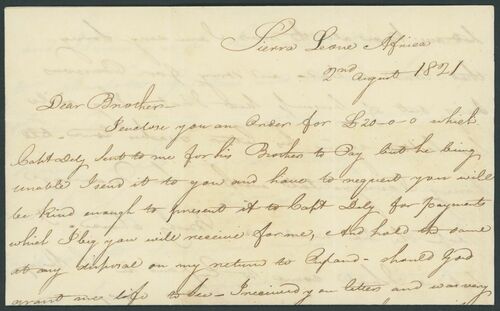 Sierra Leone Africa
2nd August 1821
Dear Brother
I enclose you an order for £20-0-0 which
Capt Dely sent to me for his Brother to Pay but he being
unable I send it to you and have to request you will
be kind enough to present it to Capt Dely for payment
which I beg you will receive for me, and hold the same
at my disposal on my return to England - should God
grant me life to be - I received you letters and was very